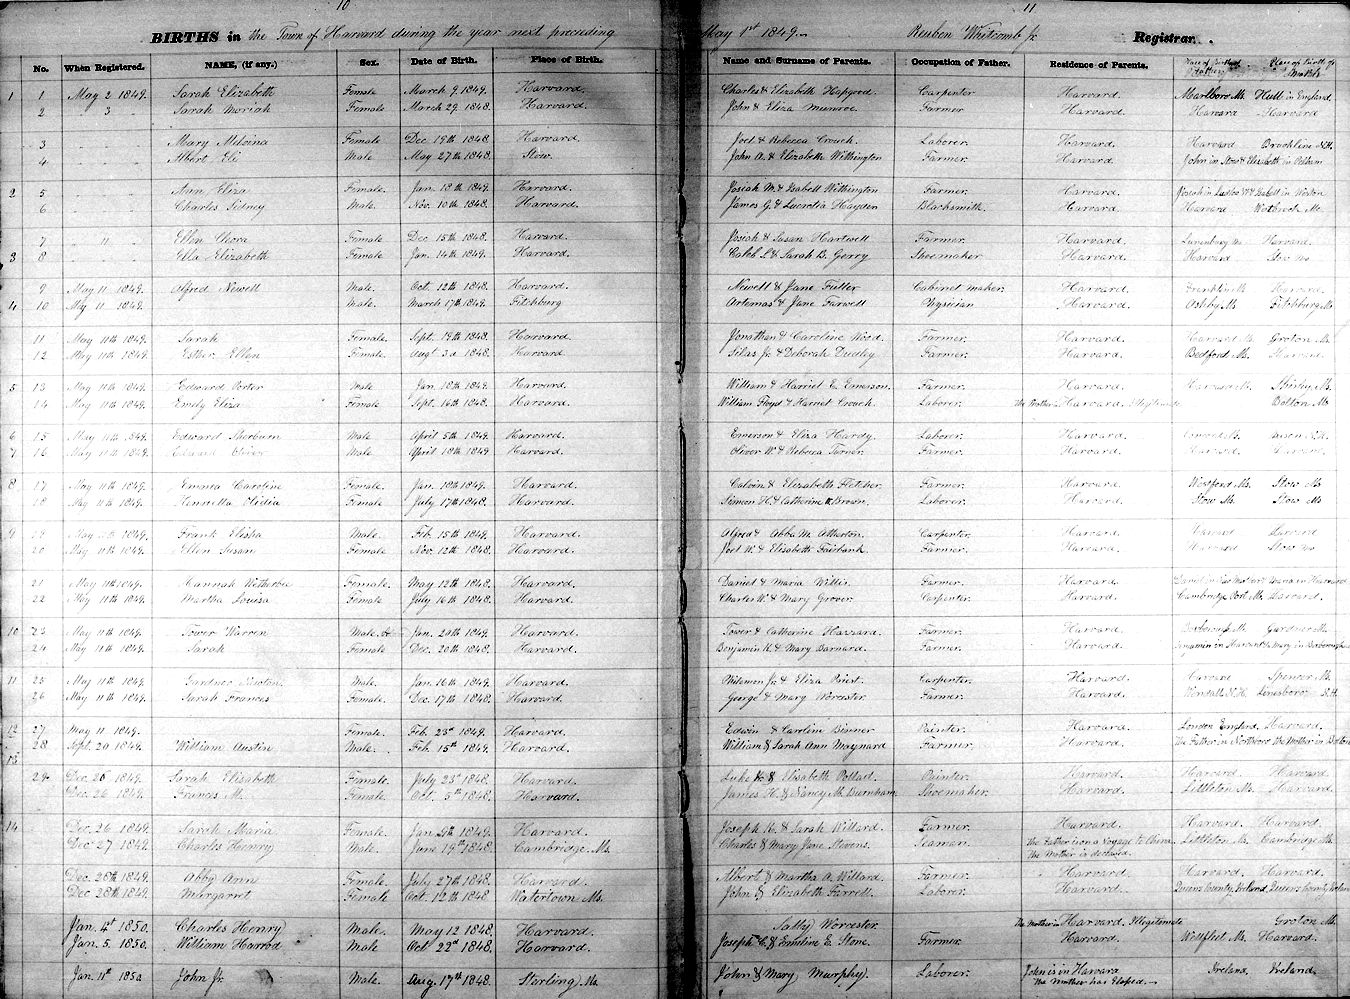 10
11
BIRTHS in the Town of Harvard during the year next preceding May 1st 1849.
Reuben Whitcomb Jr. Registrar.
No. When Registered. NAME, (if any.) Sex. Date of Birth. Place of Birth. Name and Surname of Parents. Occupation of Father. Residence of Parents. Place of Birth of Father Place of Birth of Mother
1 1 May 2 1849. Sarah Elizabeth Female March 9. 1849. Harvard. Charles & Elizabeth Hapgood Carpenter Harvard. Marlboro Ms. Hull in England.
2 " 3 Sarah Moriah Female March 29. 1848. Harvard. John & Eliza Munroe Farmer Harvard. Harvard Harvard
3 Mary Melvina Female Dec. 19th 1848. Harvard. Joel & Rebecca Crouch. Laborer. Harvard. Harvard Brookline N.H.
4 Albert Eli Male May 27th 1848. Stow. John A. & Elizabeth Withington Farmer. Harvard. John in Stow & Elizabeth in Pelham
2 5 Ann Eliza Female. Jan. 18th 1849. Harvard. Josiah M. & Isabell Withington Farmer. Harvard. Josiah in & Isabell in Weston
6 Charles Sidney Male. Nov. 10th 1848. Harvard. James G. & Lucretia Hayden Blacksmith. Harvard. Harvard Westbrook Me.
7 " 11 Ellen Female Dec. 15th 1848. Harvard. Josiah & Susan Hartwell Farmer. Harvard. Lunenburg Ms. Harvard.
3 8 Ella Elizabeth Female. Jan. 14th 1849. Harvard. Caleb S. & Sarah B. Gerry Shoemaker Harvard. Harvard Stow Ms
9 May 11. 1849. Alfred Newell Male. Oct. 12th 1848. Harvard. Newell & Jane Fuller Cabinet maker. Harvard. Franklin Ms. Harvard
4 10 May 11. 1849. Male. March 17th 1849. Fitchburg Artemas & Jane Farwell Physician Harvard. Ashby Ms Fitchburg Ms.
11 May 11th 1849. Sarah Female. Sept. 19th 1848. Harvard. Jonathan & Caroline Wood. Farmer. Harvard. Groton Ms.
12 May 11th 1849. Esther Ellen Female. Aug. 3d 1848. Harvard. Silas Jr. & Deborah Dudley Farmer. Harvard. Bedford Ms. Harvard
5 13 May 11th 1849. Edward Porter Male Jan. 18th 1849. Harvard. William & Harriet E. Emerson. Farmer. Harvard. Shirley Ms.
14 May 11th 1849. Emily Eliza Female Sept. 16th 1848. Harvard. William Floyd & Harriet Crouch. Laborer. The Mother in Harvard. Illegitimate Bolton Ms
6 15 May 11th 1849. Edward Sherburn Male April 5th 1849. Harvard. Emerson & Eliza Hardy. Laborer. Harvard. Concord Ms. Mason N.H.
7 16 May 11th 1849. Edward Oliver Male. April 18th 1849 Harvard. Oliver W. & Rebecca Turner. Farmer. Harvard. Harvard. Harvard
8 17 May 11th 1849. Emma Caroline Female. Jan. 18th 1849. Harvard. Calvin & Elizabeth Fletcher. Farmer. Harvard Westford Ms. Stow Ms.
18 May 11th 1849. Henrietta Female. July 17th 1848. Harvard. Simon H. & Catherine Brown. Laborer. Harvard. Stow Ms. Stow Ms
9 19 May 11th 1849. Frank Elisha Male. Feb. 15th 1849. Harvard. Alfred & Abba M. Atherton. Carpenter. Harvard. Harvard Harvard
20 May 11th 1849. Ellen Susan Female. Nov. 12th 1848. Harvard. Joel W. & Elizabeth Fairbank. Farmer. Harvard. Harvard Stow Ms
21 May 11th 1849. Hannah Wetherbee Female. May 12th 1848. Harvard. Daniel & Maria Willis. Farmer. Harvard. Maria in Harvard
22 May 11th 1849. Martha Louisa Female. July 16th 1848. Harvard. Charles W. & Mary Grover. Carpenter. Harvard. Cambridge Port Ms. Harvard.
10 23 May 11th 1849. Tower Warren Male. Jan. 29th 1849. Harvard. Tower & Catherine Hazzard. Farmer. Harvard. Boxborough Ms. Gardner Ms.
24 May 11th 1849. Sarah Female. Dec. 20th 1848. Harvard. Benjamin H. & Mary Barnard. Farmer. Harvard. Benjamin in Harvard & Mary in Boxborough
11 25 May 11th 1849. Gardner Newton Male. Jan. 16th 1849. Harvard. Philemon Jr. & Eliza Priest. Carpenter. Harvard. Harvard Spencer Ms.
26 May 11th 1849. Sarah Frances Female. Dec. 17th 1848. Harvard. George & Mary Worcester Farmer. Harvard. Limesboro N.H.
12 27 May 11. 1849. Female. Feb. 23d 1849. Harvard. Edwin & Carline Binner Painter. Harvard. London England. Harvard.
28 Sept. 20 1849. William Austin Male. Feb. 15th 1849. Harvard. William & Sarah Ann Maynard Farmer. Harvard. The Father in Northboro the Mother in Bolton
13
29 Dec. 26 1849. Sarah Elizabeth Female. July 23d 1848. Harvard. Luke & Elisabeth Pollard. Painter. Harvard. Harvard. Harvard.
Dec. 26 1849. Frances M. Female. Oct. 5th 1848. Harvard. James H. & Nancy M. Burnham Shoemaker. Harvard. Littleton Ms. Harvard.
14 Dec. 26 1849. Sarah Maria Female. Jan. 9th 1849. Harvard. Joseph H. & Sarah Willard. Farmer. Harvard. Harvard. Harvard.
Dec. 27 1849. Charles Henry Male. June 19th 1848. Cambridge Ms. Charles & Mary Jane Stevens. Seaman. The Father is on a voyage to China. The Mother is deceased. Littleton Ms Cambridge Ms.
Dec. 28th 1849. Abby Ann Female. July 27th 1848. Harvard. Albert & Martha A. Willard. Farmer. Harvard. Harvard. Harvard.
Dec. 28th 1849. Margaret Female Oct. 12th 1848. Watertown Ms. John & Elizabeth Farrell. Laborer. Harvard. Queens County Ireland, Queens County Ireland
Jan. 4th 1850. Charles Henry Male. May 12 1848. Harvard. Sally Worcester. The Mother in Harvard. Illegitimate Groton Ms.
Jan. 5. 1850. William Harrod Male Oct. 22d 1848. Harvard. Joseph C. & Emeline E. Stone. Farmer. Harvard. Wellfleet Ms. Harvard.
Jan. 11th 1850 John Jr. Male. Aug. 17th 1848. Sterling Ms. John & Mary Murphy. Laborer. John is in Harvard The Mother has Eloped. Ireland, Ireland.